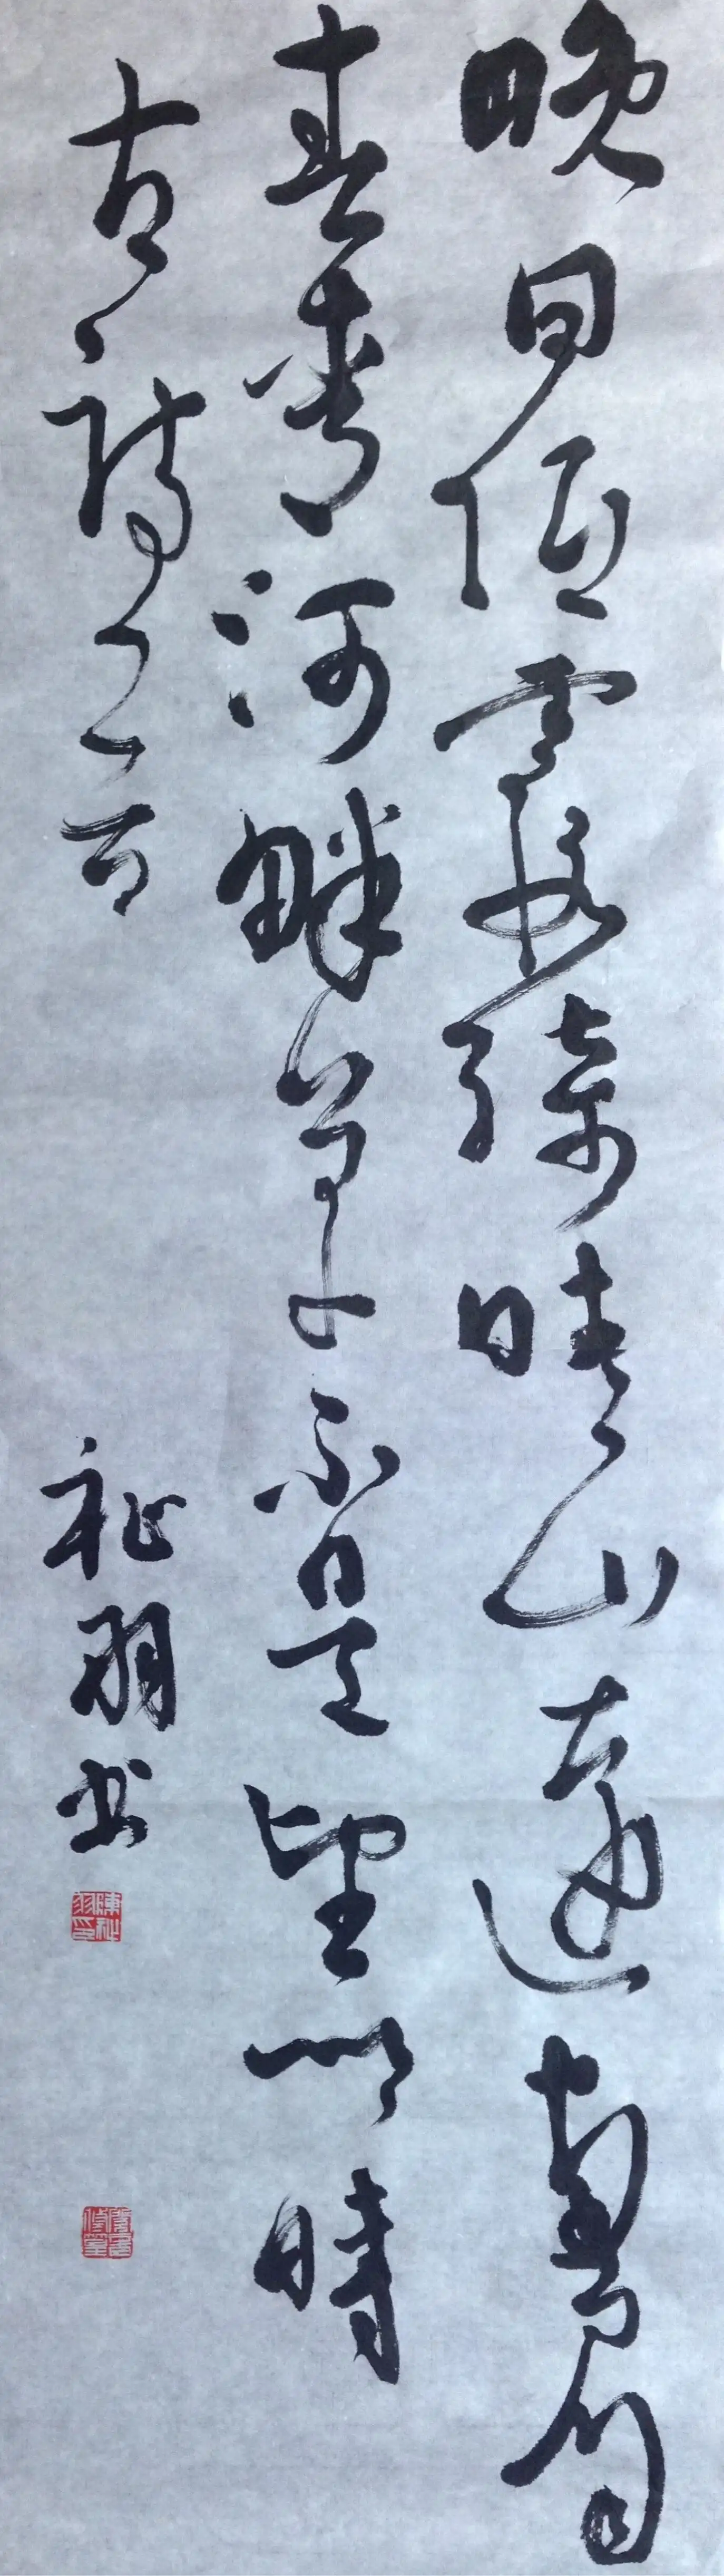 晚日低霞綺晴山遠畫眉
青春河畔草不是望鄉時
古詩一首
祉羽书
陳祉羽印